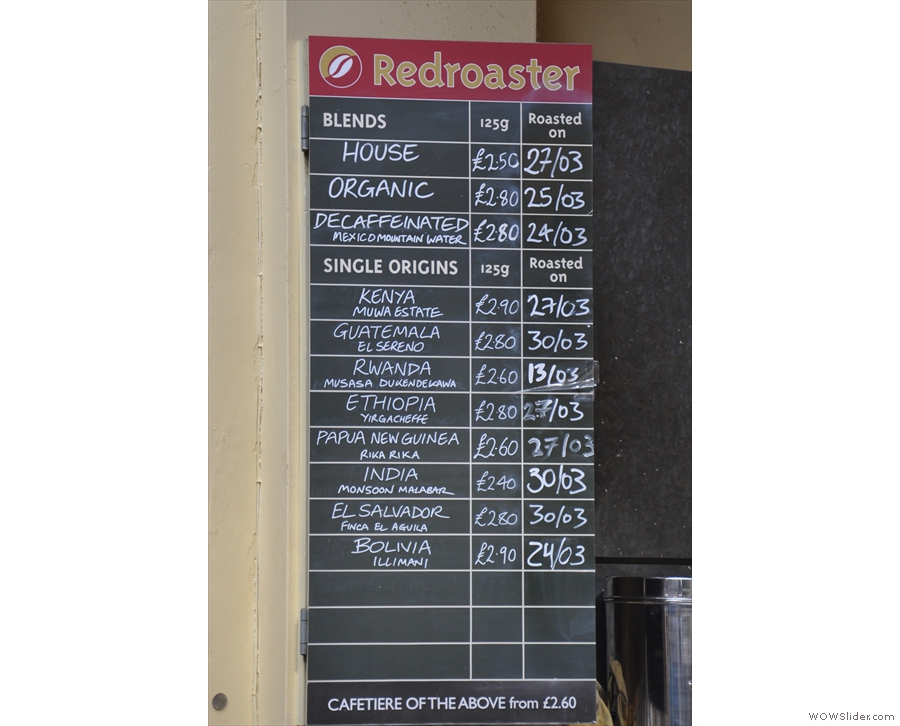 Redroaster
BLENDS 125g Roasted on
HOUSE £2.50 27/03
ORGANIC £2.80 25/03
DECAFFEINATED £2.80 24/03
MEXICO MOUNTAIN WATER
SINGLE ORIGINS 125g Roasted on
KENYA £2.90 27/03
MUWA ESTATE
GUATEMALA £2.80 30/03
EL SERENO
RWANDA £2.60 13/03
MUSASA DUKENDEKAWA
ETHIOPIA £2.80 27/03
YIRGACHEFFE
PAPUA NEW GUINEA £2.60 27/03
RIKA RIKA
INDIA £2.40 30/03
MONSOON MALABAR
EL SALVADOR £2.80 30/03
FINCA EL AGUILA
BOLIVIA £2.90 24/03
ILLIMANI
CAFETIERE OF THE ABOVE from £2.60
WOWSlider.com